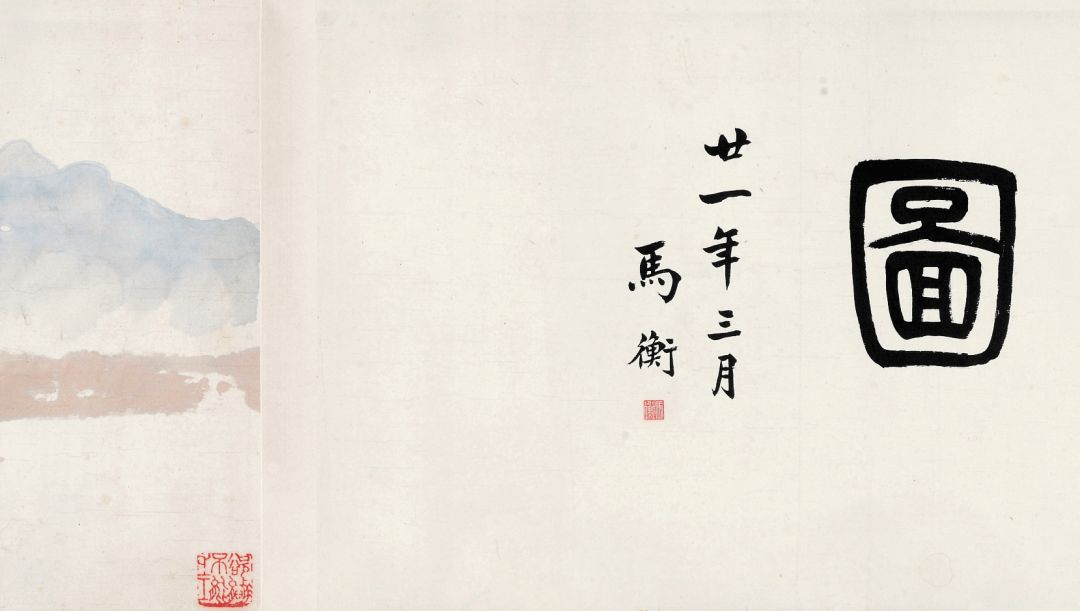 圖
廿一年三月
馬衡